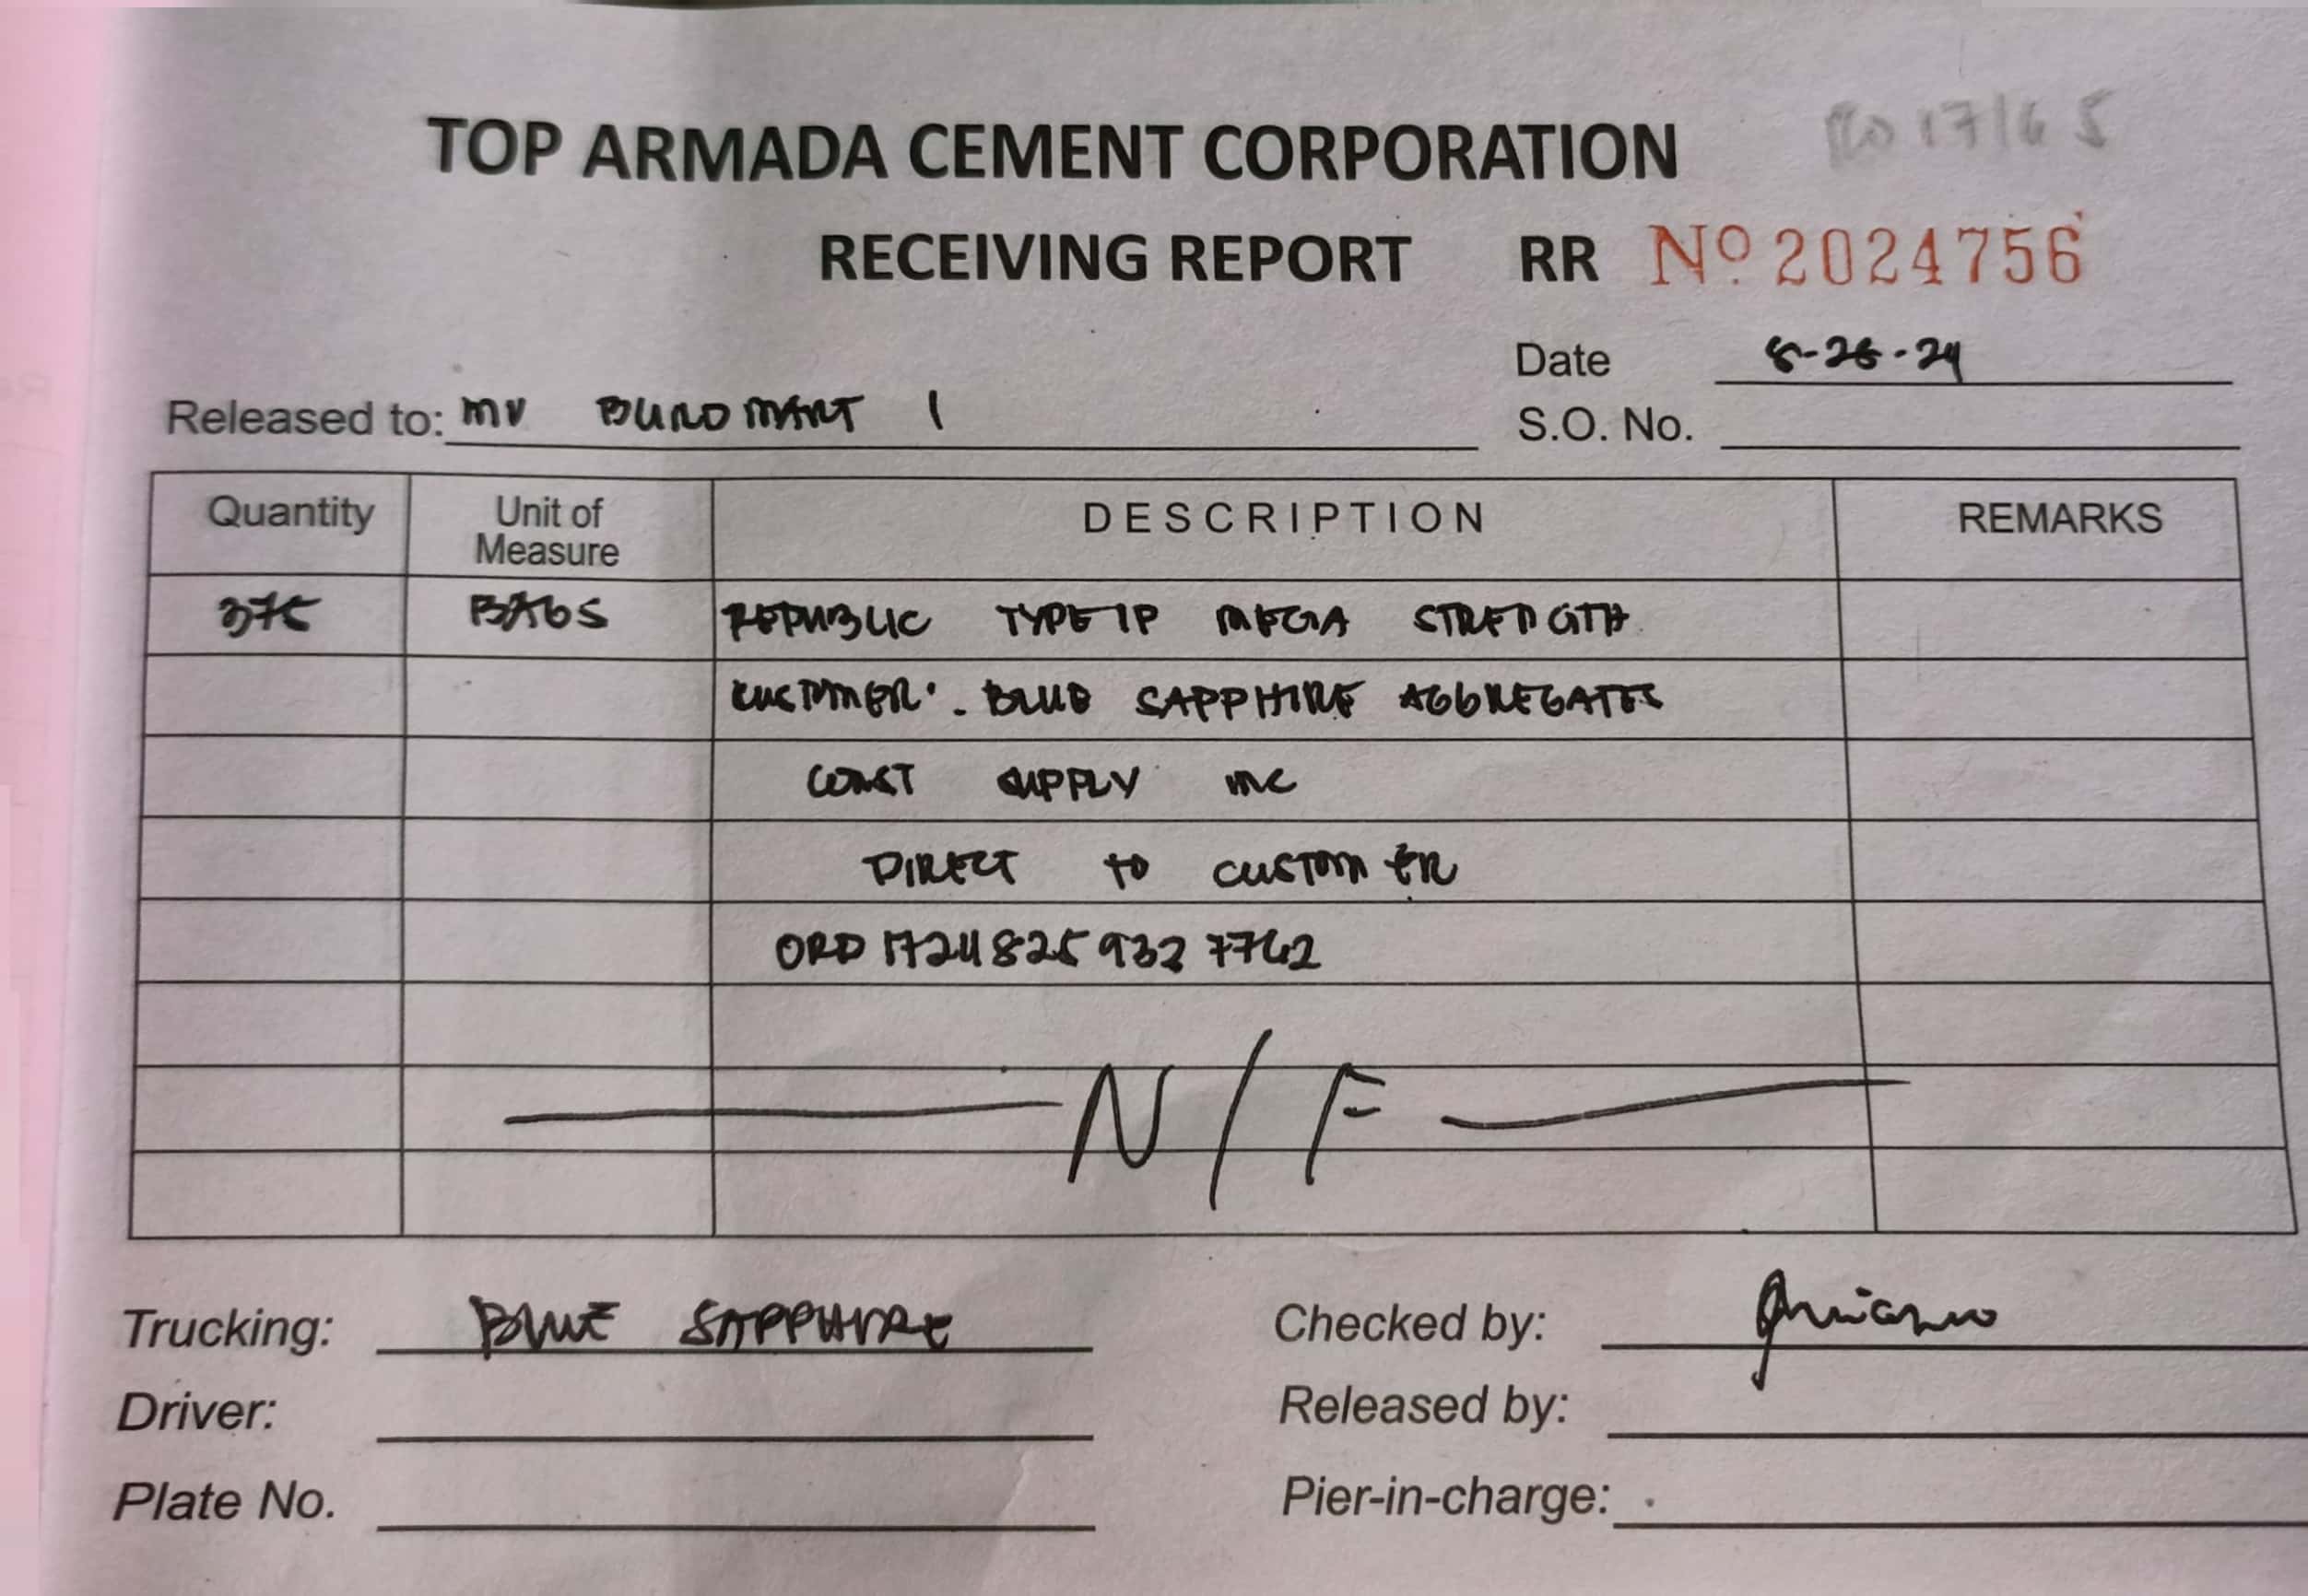 TOP ARMADA CEMENT CORPORATION
RECEIVING REPORT RR Nº 2024756
Date
Released to: MV BUROMART 1
S.O. No.
Quantity Unit of Measure DESCRIPTION REMARKS
375 BAGS REPUBLIC TYPE IP MEGA STRENGTH
CUSTOMER: BLUE SAPPHIRE AGGREGATES
CONST SUPPLY INC
DIRECT to CUSTOMER
ORD
N/F
Trucking: BLUE SAPPHIRE Checked by:
Driver: Released by:
Plate No. Pier-in-charge: